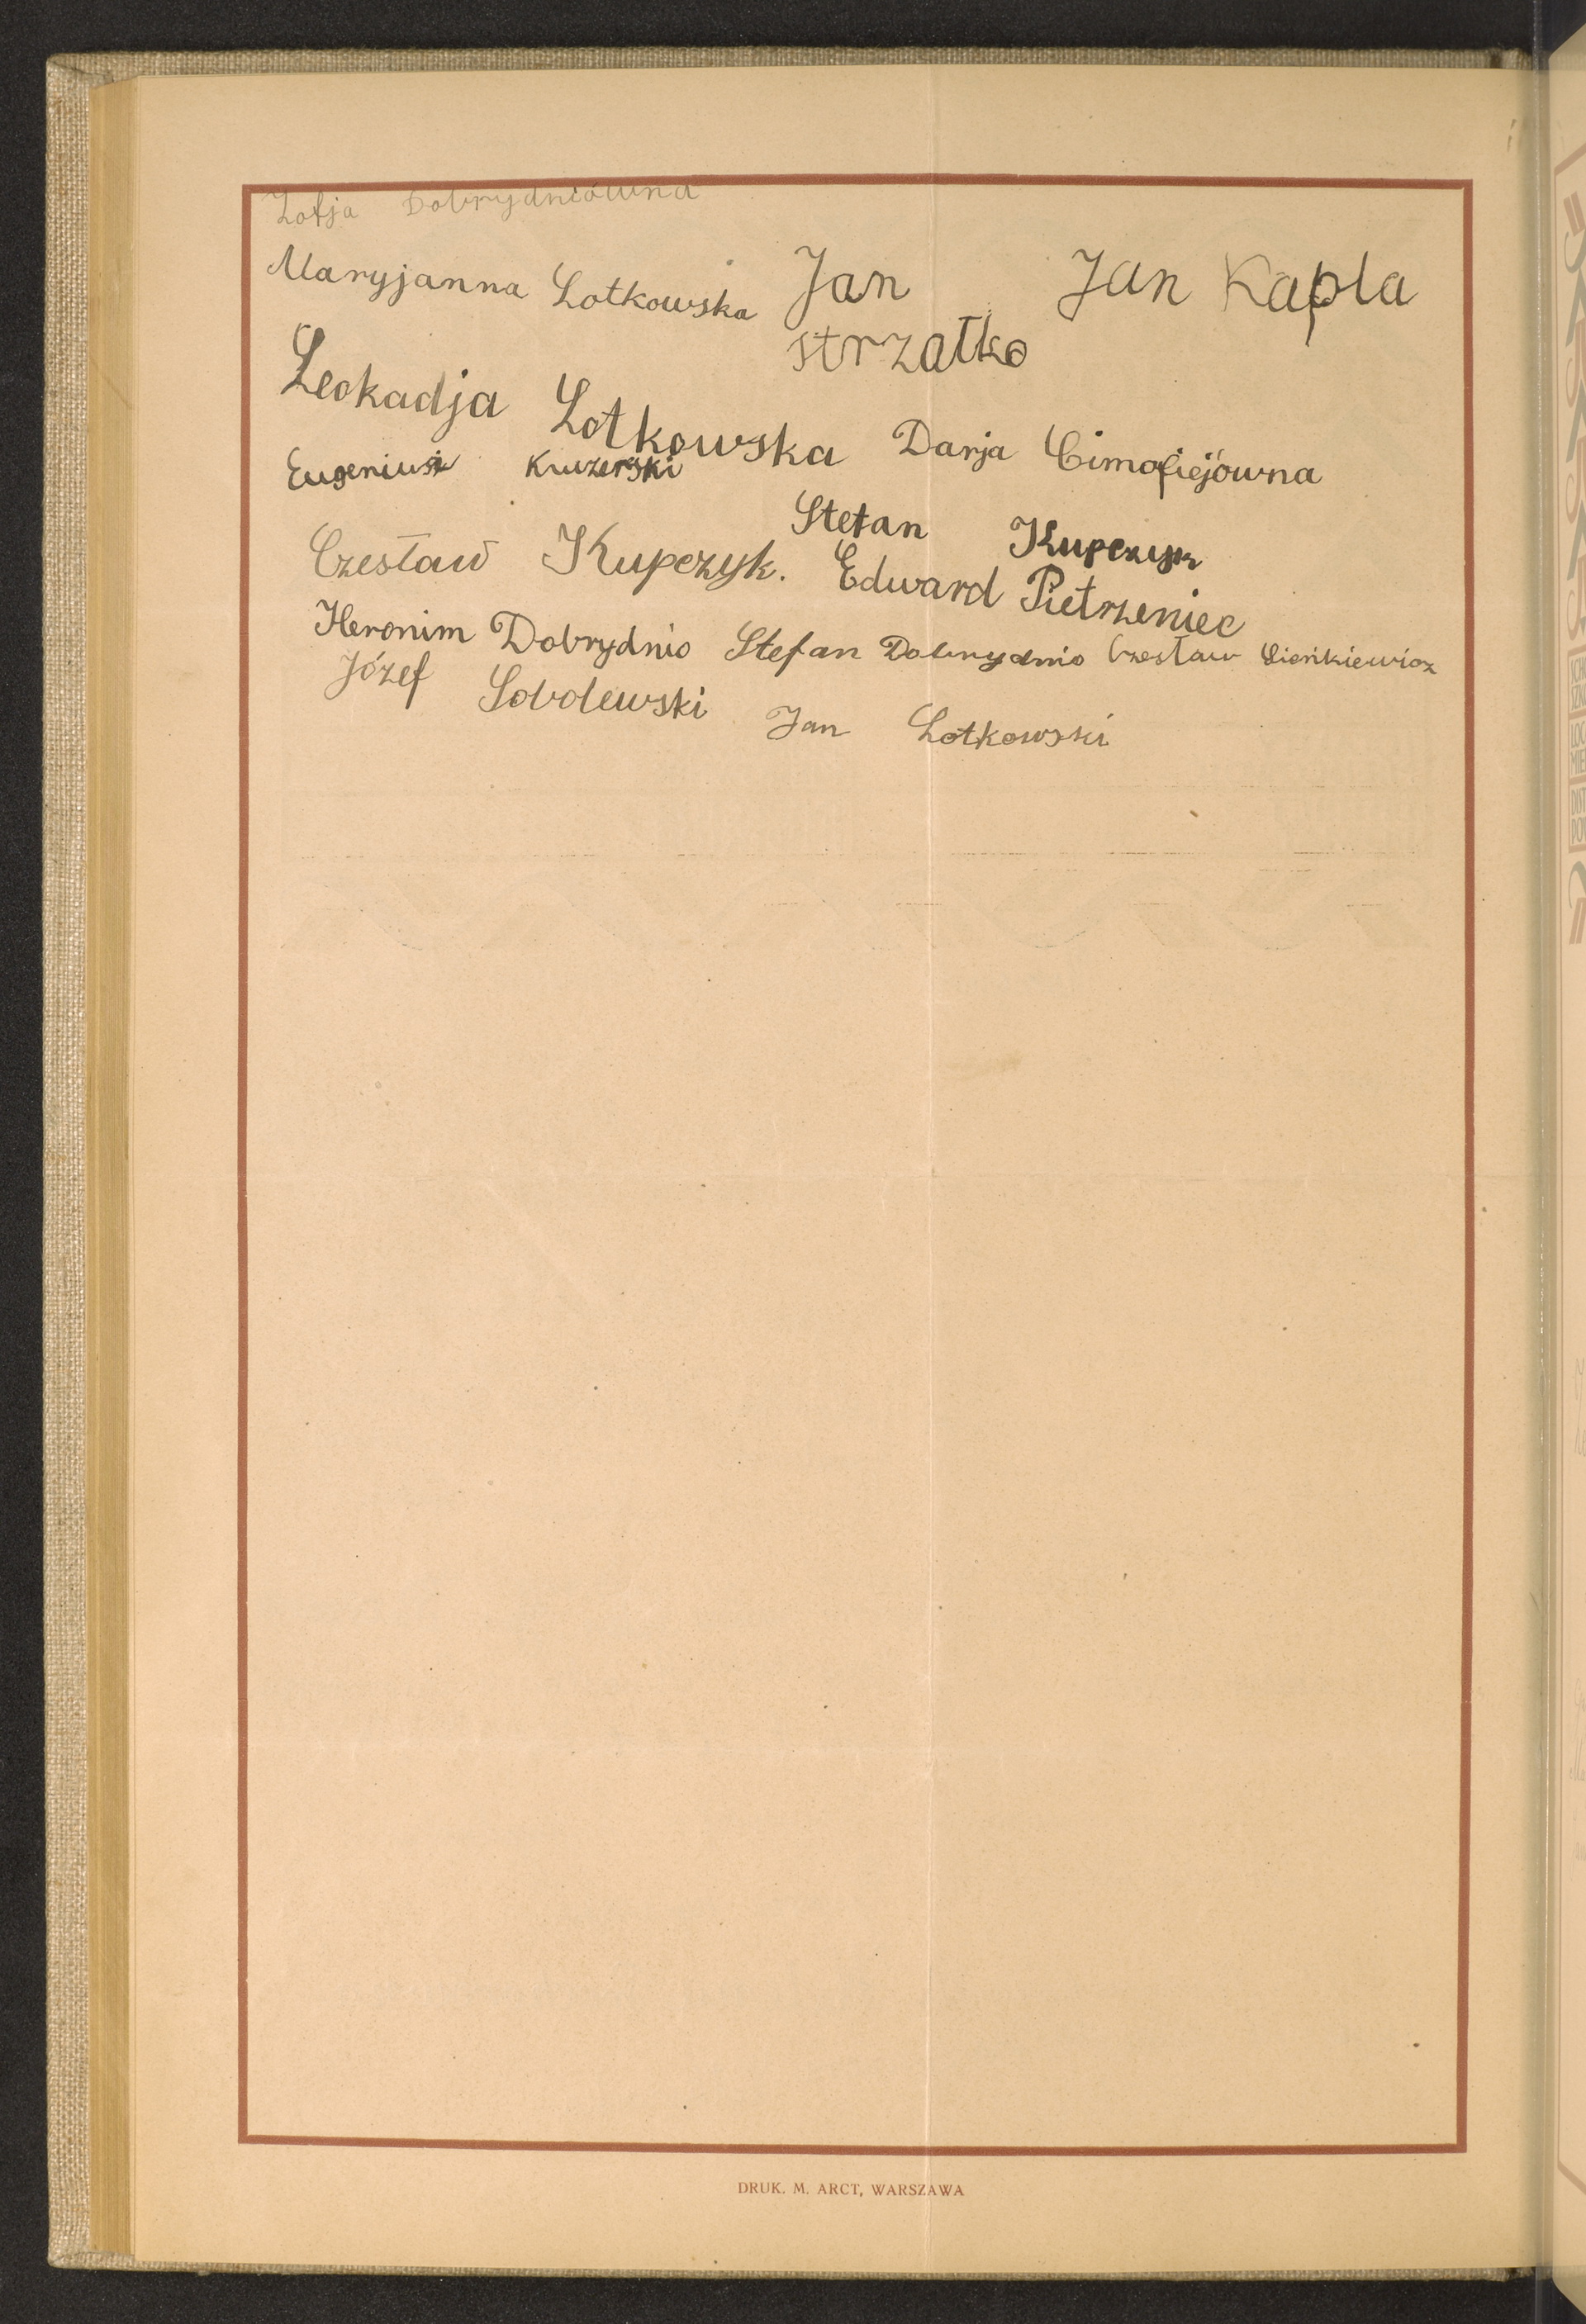 Zofja Dobrydniówna
Maryjanna Lotkowska Jan Jan Kapla
strzałko
Leokadja Lotkowska Darja Cimofiejówna
Eugeniusz Kruzerski
Stefan Kupczyk
Czesław Kupczyk. Edward Pietrzeniec
Heronim Dobrydnio Stefan Dobrydnio Czesław Sieńkiewicz
Józef Sobolewski
Jan Lotkowski
DRUK. M. ARCT, WARSZAWA